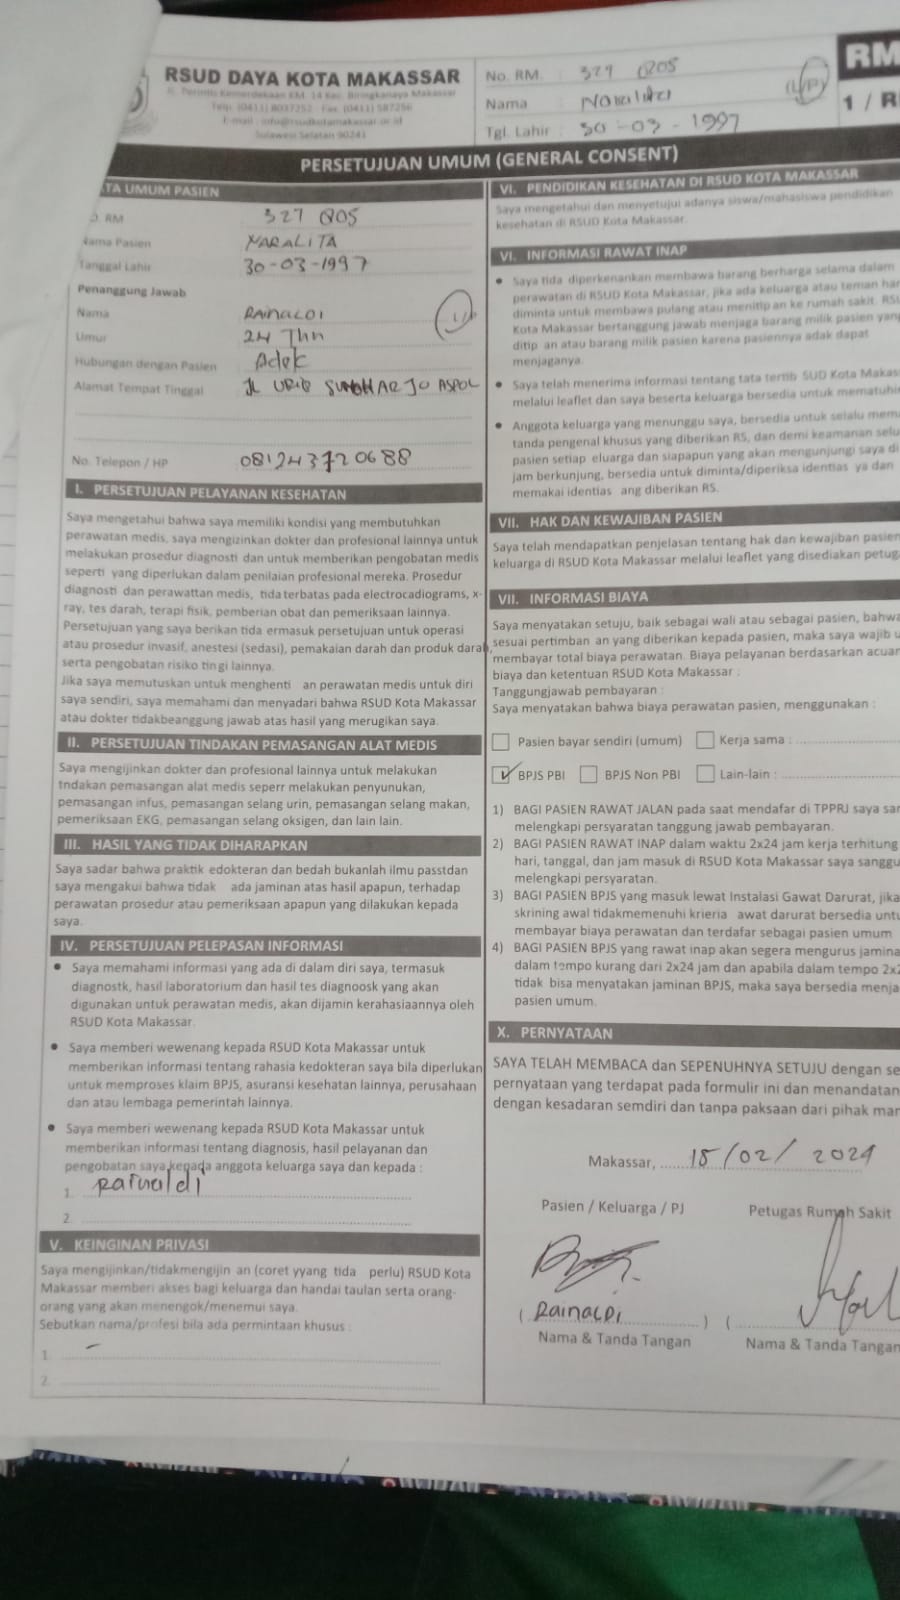 RSUD DAYA KOTA MAKASSAR
Jl. Perintis Kemerdekaan KM. 14 Kec. Biringkanaya Makassar
Telp. (0411) 8037252 - Fax. (0411) 587256
E-mail : info@rsudkotamakassar.or.id
Sulawesi Selatan 90241
No. RM. : 327
Nama :
(L/P)
Tgl. Lahir : 30-03-1997
RM
1 / R
PERSETUJUAN UMUM (GENERAL CONSENT)
TA UMUM PASIEN
O. RM 327
Nama Pasien NARALITA
Tanggal Lahir 30-03-1997
Penanggung Jawab
Nama RAINALDI
Umur 24 Thn
Hubungan dengan Pasien Adek
Alamat Tempat Tinggal JL URIP ASPOL
No. Telepon / HP 081243720688
I. PERSETUJUAN PELAYANAN KESEHATAN
Saya mengetahui bahwa saya memiliki kondisi yang membutuhkan
perawatan medis, saya mengizinkan dokter dan profesional lainnya untuk
melakukan prosedur diagnosti dan untuk memberikan pengobatan medis
seperti yang diperlukan dalam penilaian profesional mereka. Prosedur
diagnosti dan perawattan medis, tida terbatas pada electrocadiograms, x-
ray, tes darah, terapi fisik, pemberian obat dan pemeriksaan lainnya.
Persetujuan yang saya berikan tida ermasuk persetujuan untuk operasi
atau prosedur invasif, anestesi (sedasi), pemakaian darah dan produk darah,
serta pengobatan risiko tin gi lainnya.
Jika saya memutuskan untuk menghenti an perawatan medis untuk diri
saya sendiri, saya memahami dan menyadari bahwa RSUD Kota Makassar
atau dokter tidakbeanggung jawab atas hasil yang merugikan saya.
II. PERSETUJUAN TINDAKAN PEMASANGAN ALAT MEDIS
Saya mengijinkan dokter dan profesional lainnya untuk melakukan
tndakan pemasangan alat medis seperr melakukan penyunukan,
pemasangan infus, pemasangan selang urin, pemasangan selang makan,
pemeriksaan EKG, pemasangan selang oksigen, dan lain lain.
III. HASIL YANG TIDAK DIHARAPKAN
Saya sadar bahwa praktik edokteran dan bedah bukanlah ilmu passtdan
saya mengakui bahwa tidak ada jaminan atas hasil apapun, terhadap
perawatan prosedur atau pemeriksaan apapun yang dilakukan kepada
saya.
IV. PERSETUJUAN PELEPASAN INFORMASI
• Saya memahami informasi yang ada di dalam diri saya, termasuk
diagnostk, hasil laboratorium dan hasil tes diagnoosk yang akan
digunakan untuk perawatan medis, akan dijamin kerahasiaannya oleh
RSUD Kota Makassar.
• Saya memberi wewenang kepada RSUD Kota Makassar untuk
memberikan informasi tentang rahasia kedokteran saya bila diperlukan
untuk memproses klaim BPJS, asuransi kesehatan lainnya, perusahaan
dan atau lembaga pemerintah lainnya.
• Saya memberi wewenang kepada RSUD Kota Makassar untuk
memberikan informasi tentang diagnosis, hasil pelayanan dan
pengobatan saya kepada anggota keluarga saya dan kepada :
1. Rainaldi
2.
V. KEINGINAN PRIVASI
Saya mengijinkan/tidakmengijin an (coret yyang tida perlu) RSUD Kota
Makassar memberi akses bagi keluarga dan handai taulan serta orang-
orang yang akan menengok/menemui saya.
Sebutkan nama/profesi bila ada permintaan khusus :
1. -
2.
VI. PENDIDIKAN KESEHATAN DI RSUD KOTA MAKASSAR
Saya mengetahui dan menyetujui adanya siswa/mahasiswa pendidikan
kesehatan di RSUD Kota Makassar.
VI. INFORMASI RAWAT INAP
• Saya tida diperkenankan membawa barang berharga selama dalam
perawatan di RSUD Kota Makassar, jika ada keluarga atau teman har
diminta untuk membawa pulang atau menitip an ke rumah sakit. RSU
Kota Makassar bertanggung jawab menjaga barang milik pasien yang
ditip an atau barang milik pasien karena pasiennya adak dapat
menjaganya.
• Saya telah menerima informasi tentang tata tertib SUD Kota Makas
melalui leaflet dan saya beserta keluarga bersedia untuk mematuhi
• Anggota keluarga yang menunggu saya, bersedia untuk selalu mem
tanda pengenal khusus yang diberikan RS, dan demi keamanan selu
pasien setiap eluarga dan siapapun yang akan mengunjungi saya di
jam berkunjung, bersedia untuk diminta/diperiksa identias ya dan
memakai identias ang diberikan RS.
VII. HAK DAN KEWAJIBAN PASIEN
Saya telah mendapatkan penjelasan tentang hak dan kewajiban pasien
keluarga di RSUD Kota Makassar melalui leaflet yang disediakan petuga
VII. INFORMASI BIAYA
Saya menyatakan setuju, baik sebagai wali atau sebagai pasien, bahwa
sesuai pertimban an yang diberikan kepada pasien, maka saya wajib u
membayar total biaya perawatan. Biaya pelayanan berdasarkan acuan
biaya dan ketentuan RSUD Kota Makassar :
Tanggungjawab pembayaran :
Saya menyatakan bahwa biaya perawatan pasien, menggunakan :
Pasien bayar sendiri (umum) Kerja sama :
✓ BPJS PBI BPJS Non PBI Lain-lain :
1) BAGI PASIEN RAWAT JALAN pada saat mendafar di TPPRJ saya san
melengkapi persyaratan tanggung jawab pembayaran.
2) BAGI PASIEN RAWAT INAP dalam waktu 2x24 jam kerja terhitung
hari, tanggal, dan jam masuk di RSUD Kota Makassar saya sanggu
melengkapi persyaratan.
3) BAGI PASIEN BPJS yang masuk lewat Instalasi Gawat Darurat, jika
skrining awal tidakmemenuhi krieria awat darurat bersedia untu
membayar biaya perawatan dan terdafar sebagai pasien umum
4) BAGI PASIEN BPJS yang rawat inap akan segera mengurus jamina
dalam tempo kurang dari 2x24 jam dan apabila dalam tempo 2x2
tidak bisa menyatakan jaminan BPJS, maka saya bersedia menja
pasien umum.
X. PERNYATAAN
SAYA TELAH MEMBACA dan SEPENUHNYA SETUJU dengan se
pernyataan yang terdapat pada formulir ini dan menandatan
dengan kesadaran semdiri dan tanpa paksaan dari pihak man
Makassar, 15/02/2024
Pasien / Keluarga / PJ Petugas Rumah Sakit
( RAINALDI ) (
Nama & Tanda Tangan Nama & Tanda Tangan